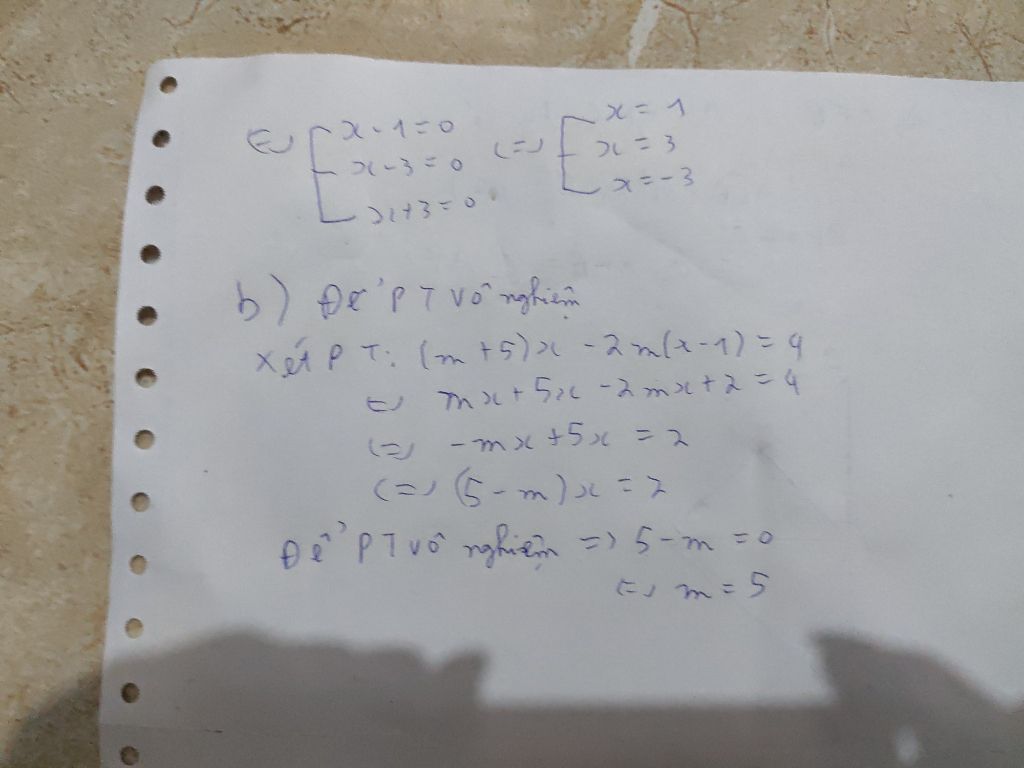 <=> [ x - 1 = 0 <=> [ x = 1
x - 3 = 0 x = 3
x + 3 = 0 x = -3
b) Để PT vô nghiệm
Xét PT: (m + 5)x - 2m(x - 1) = 4
<=> mx + 5x - 2mx + 2 = 4
<=> -mx + 5x = 2
<=> (5 - m)x = 2
Để PT vô nghiệm => 5 - m = 0
<=> m = 5